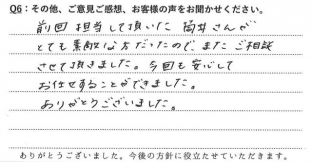 Q6：その他、ご意見ご感想、お客様の声をお聞かせください。
前回担当して頂いた筒井さんが
とても素敵な方だったので、またご相談
させて頂きました。今回も安心して
お任せすることができました。
ありがとうございました。
ありがとうございました。今後の方針に役立たせていただきます。